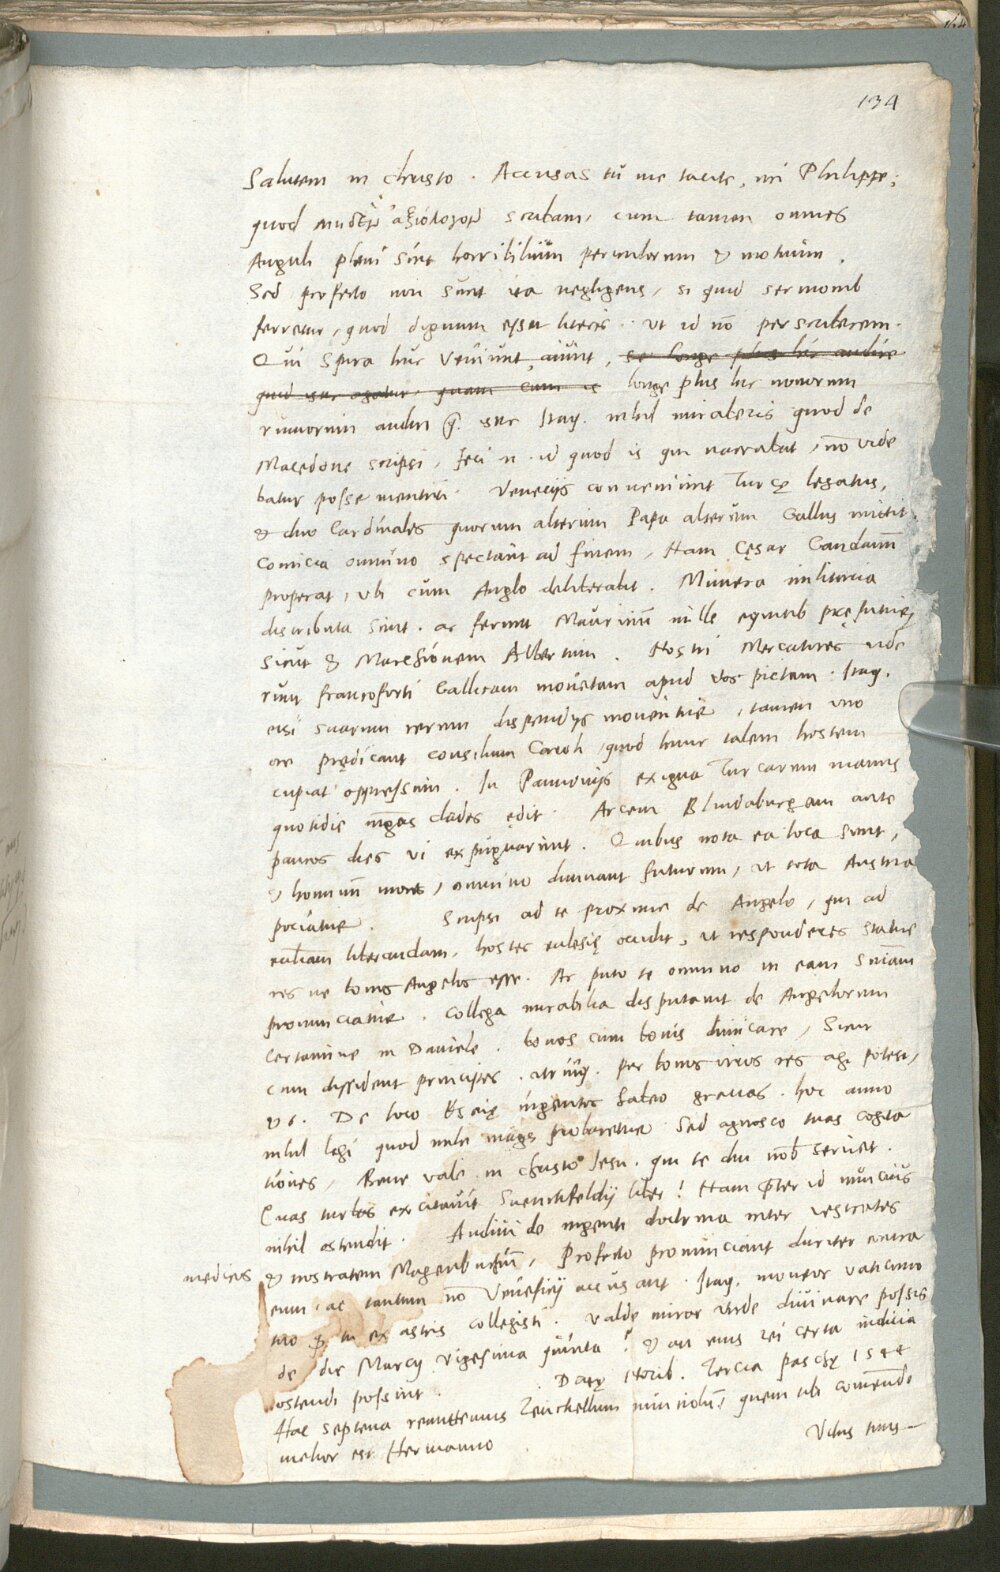 134
Salutem in Christo. Accusas tu me tacite, mi Philippe,
quod μηδὲν ἀξιόλογον scribam, cum tamen omnes
Anguli pleni sint horribilium periculorum & motuum.
Sed profecto non sum ita negligens, si quid sermonib
ferretur, quod dignum esset literis, ut id nō perscriberem.
Qui Spira huc veniunt, aiunt, se longe plus hic audire
quid istic agatur, quam cum is longe plus hic novorum
rumorum audiri q̃ istic Itaq. nihil mireris quod de
Macedone scripsi, feci n. id quod is qui narrabat, nō vide
batur posse mentiri. Venecijs conveniunt Turcę legatus,
& duo Cardinales quorum alterum Papa alterum Gallus mittit.
Comicia omnino spectant ad finem, Nam Cęsar Gandauū
properat, ubi cum Anglo deliberabit. Munera militaria
distributa sunt. ac ferunt Mauriciū mille equitib pręfuturū,
sicut & Marchionem Albertum. Nostri Mercatores vide
runt francoforti Gallicam monetam apud vos pictam. Itaq.
etsi suarum rerum dispendijs moventur, tamen uno
ore prędicant consilium Caroli, quod hunc talem hostem
cupiat oppressum. In Pannonijs exigua Turcarum manus
quotidie magnas clades ędit. Arcem Blindaburgam ante
paucos dies vi expugnarunt. Quibus nota ea loca sunt,
& hominū mores, omnino divinant futurum, ut tota Austria
pociatur. Scripsi ad te proxime de Angelo, qui ad
ecclesiam liberandam, hostes ecclesię occidit, ut responderes statue
res ne bonus Angelus esse. Ac puto te omnino in eam sn̄iam
pronunciature. Collega mirabilia disputavit de Angelorum
certamine in Daniele. bonos cum bonis dimicare, Sicut
cum dissident principes, utrinq. per bonos viros res agi potest,
&c. De loco Esaię ingentes habeo gratias. hoc anno
nihil legi quod mihi magis probaretur. Sed agnosco tuas cogita
tiones, Bene vale in Christo Jesu. qui te diu nobis servet.
Quas turbas excitavit Suenckfeldij liber! Nam p̄ter id nuncius
nihil ostendit. Audivi de ingenti doctrina inter vestrates
medicus & nostratem Magenbuchiū, Profecto pronunciant duriter contra
eum, ac tantum nō Veneficij accusant. Itaq. moveor vaticinio
tuo qd tu ex astris collegisti. Valde miror unde divinare possis
de die Marcij vigesima quinta? & an eius rei certa indicia
ostendi possint. Datę Norib. Tercia paschę 1544
Hac septima remittemus Zeuchellum nuncium, quem tibi commendo
melior est Hermanno
Vitus tuus